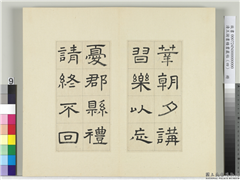 莘朝夕講
習樂以忘
憂郡縣禮
請終不回
9